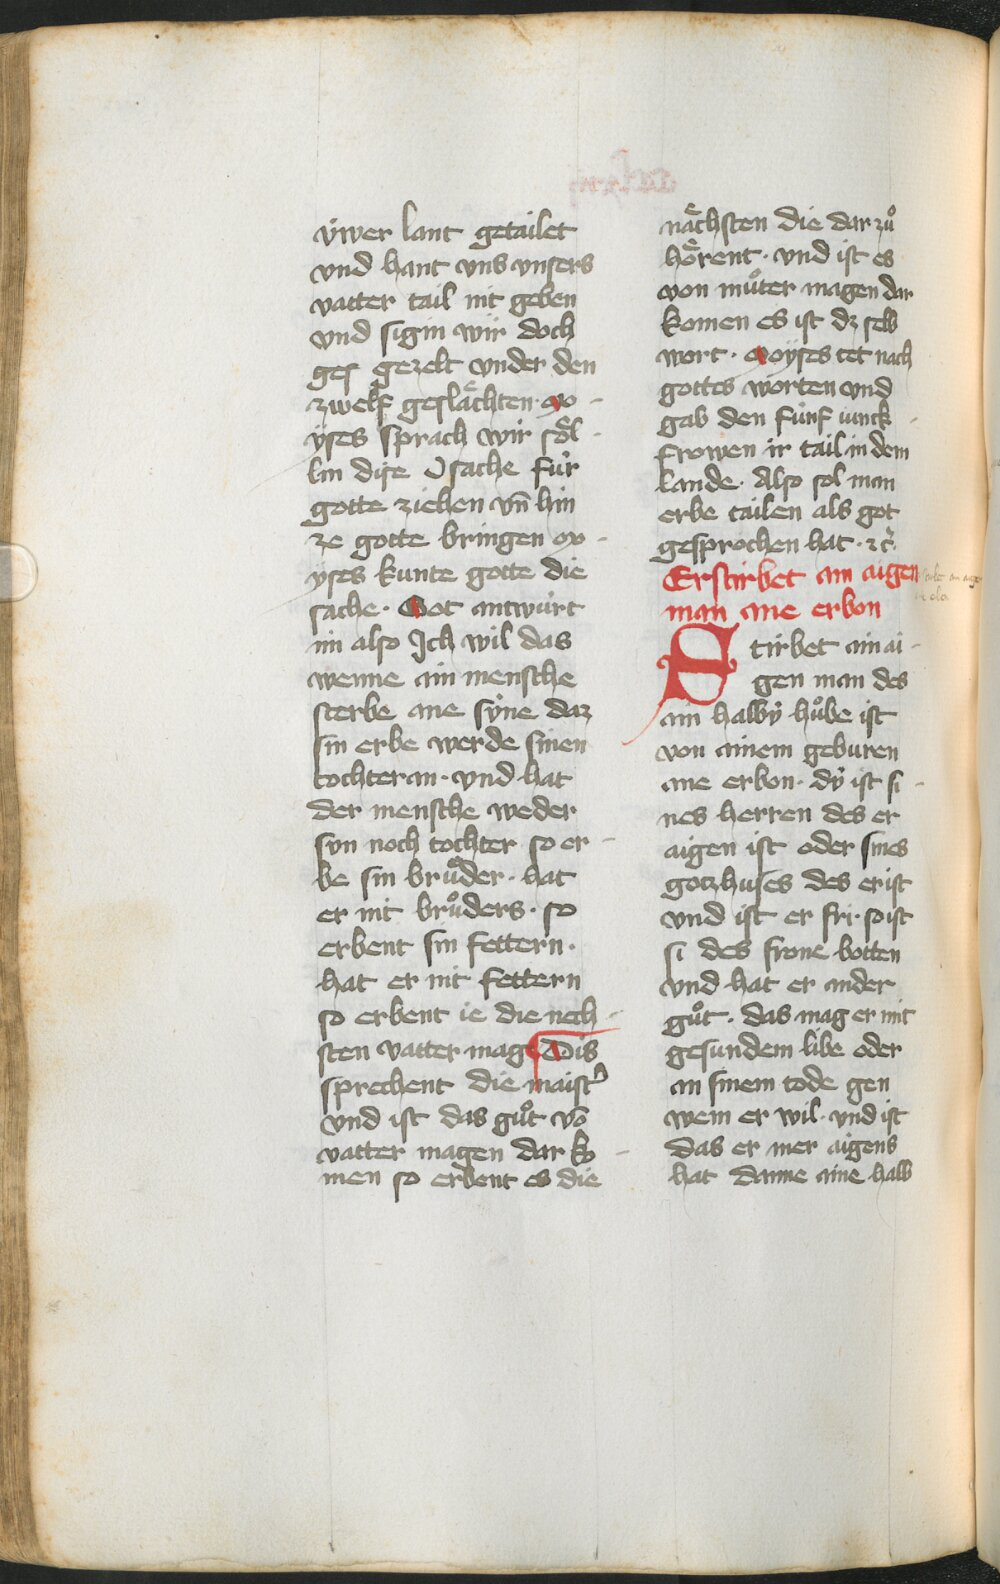 üwer lant getailet
vnd hant vns vnsers
vatter tail nit geben
vnd sigin wir doch
ges gezelt vnder den
zwelf geslaͤchten · Mo
yses sprach wir soͤl
lin dise vrsache fúr
gotte ziehen vn̄ hin
ze gotte bringen Mo
yses kunte gotte die
sache · Got antwúrt
im also Ich wil das
wenne ain mensche
sterbe ane sýne daz
sin erbe werde sinen
tochteran · vnd hat
der mensche weder
syn noch tochter so er
be sin bruͦder · hat
er nit bruͦders · so
erbent sin fettern ·
hat er nit fettern
so erbent ie die nech
sten vatter mage Dis
sprechent die maistˀ
vnd ist das guͦt vō
vatter magen dar ko
men so erbent es die
naͤchsten die dar zuͦ
hoͤrent · vnd ist es
von muͦter magen dar
komen es ist dz selb
wort · Moyses tet nach
gottes worten vnd
gab den fúnf iunck
frowen ir tail in dem
lande · Also sol man
erbe tailen als got
gesprochen hat · ⁊c̄
Erstirbet ain aigen
man ane erbon
Stirbet ain ai
gen man des
ain halbú huͦbe ist
von ainem geburen
ane erbon · dú ist si
nes herren des er
aigen ist oder sines
gotzhuses des er ist
vnd ist er fri · so ist
si des frone botten
vnd hat er ander
guͦt · das mag er mit
gesundem libe oder
an sinem tode gen
wem er wil · vnd ist
das er mer aigens
hat danne aine halb